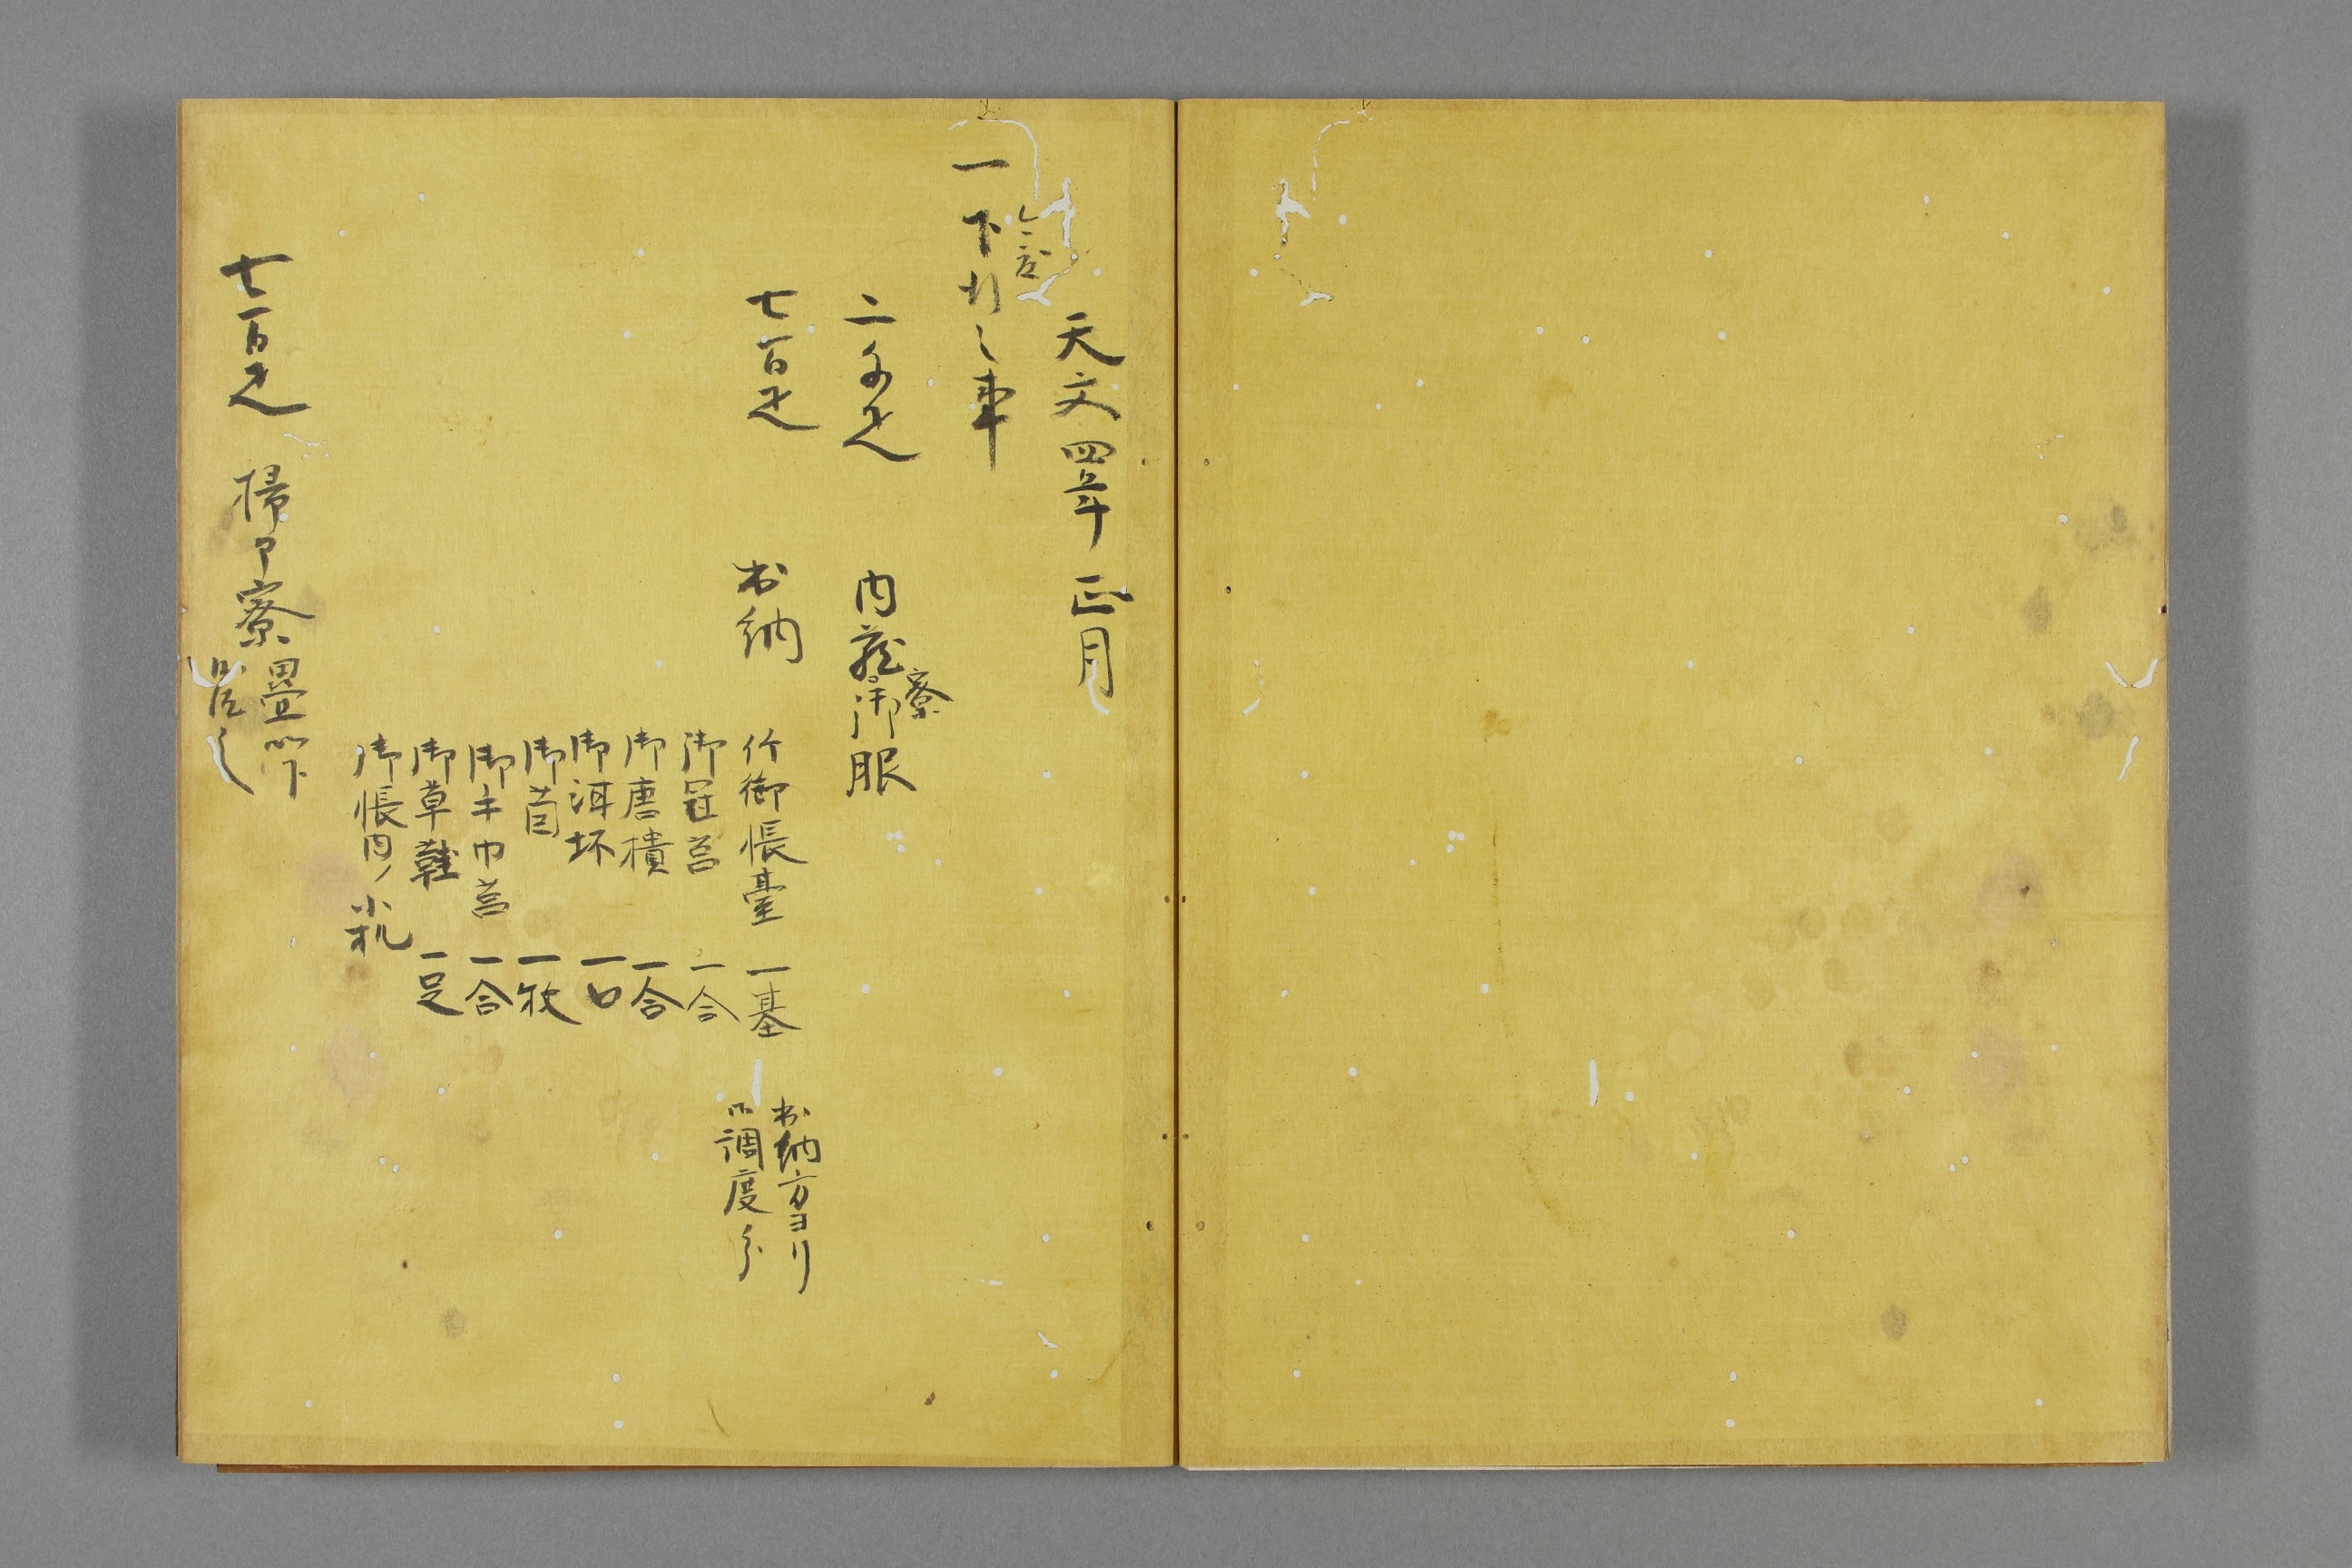 天文四年 正月
一 下行之事
二千疋 内蔵寮 御服
七百疋 出納
竹御帳臺 一基
出納方ヨリ
御調度分
御冠筥 一合
御唐樻 一合
御泔坏 一口
御茵 一枚
御手巾筥 一合
御草鞋 一足
御帳内ノ小机
七百疋 掃部寮 畳以下